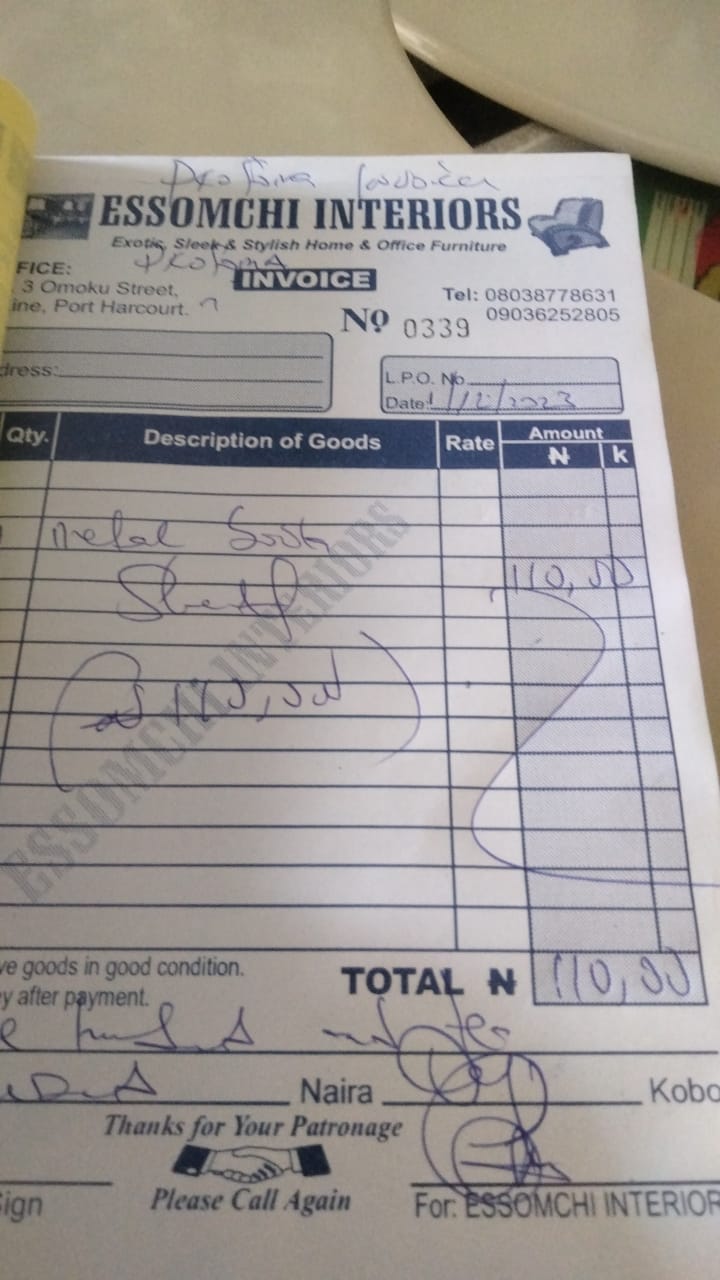 Proforma Invoice
ESSOMCHI INTERIORS
Exotic, Sleek & Stylish Home & Office Furniture
Proforma
FICE:
INVOICE
3 Omoku Street,
ine, Port Harcourt.
Tel: 08038778631
09036252805
No 0339
dress:
L.P.O. No.
Date: 1/12/2023
Qty. Description of Goods Rate Amount
₦ k
metal book
Shelf 110,00
ESSOMCHI INTERIORS
ve goods in good condition.
y after payment.
TOTAL ₦ 110,00
e hundred and ten
Naira Kobo
Thanks for Your Patronage
Please Call Again
Sign
For: ESSOMCHI INTERIOR